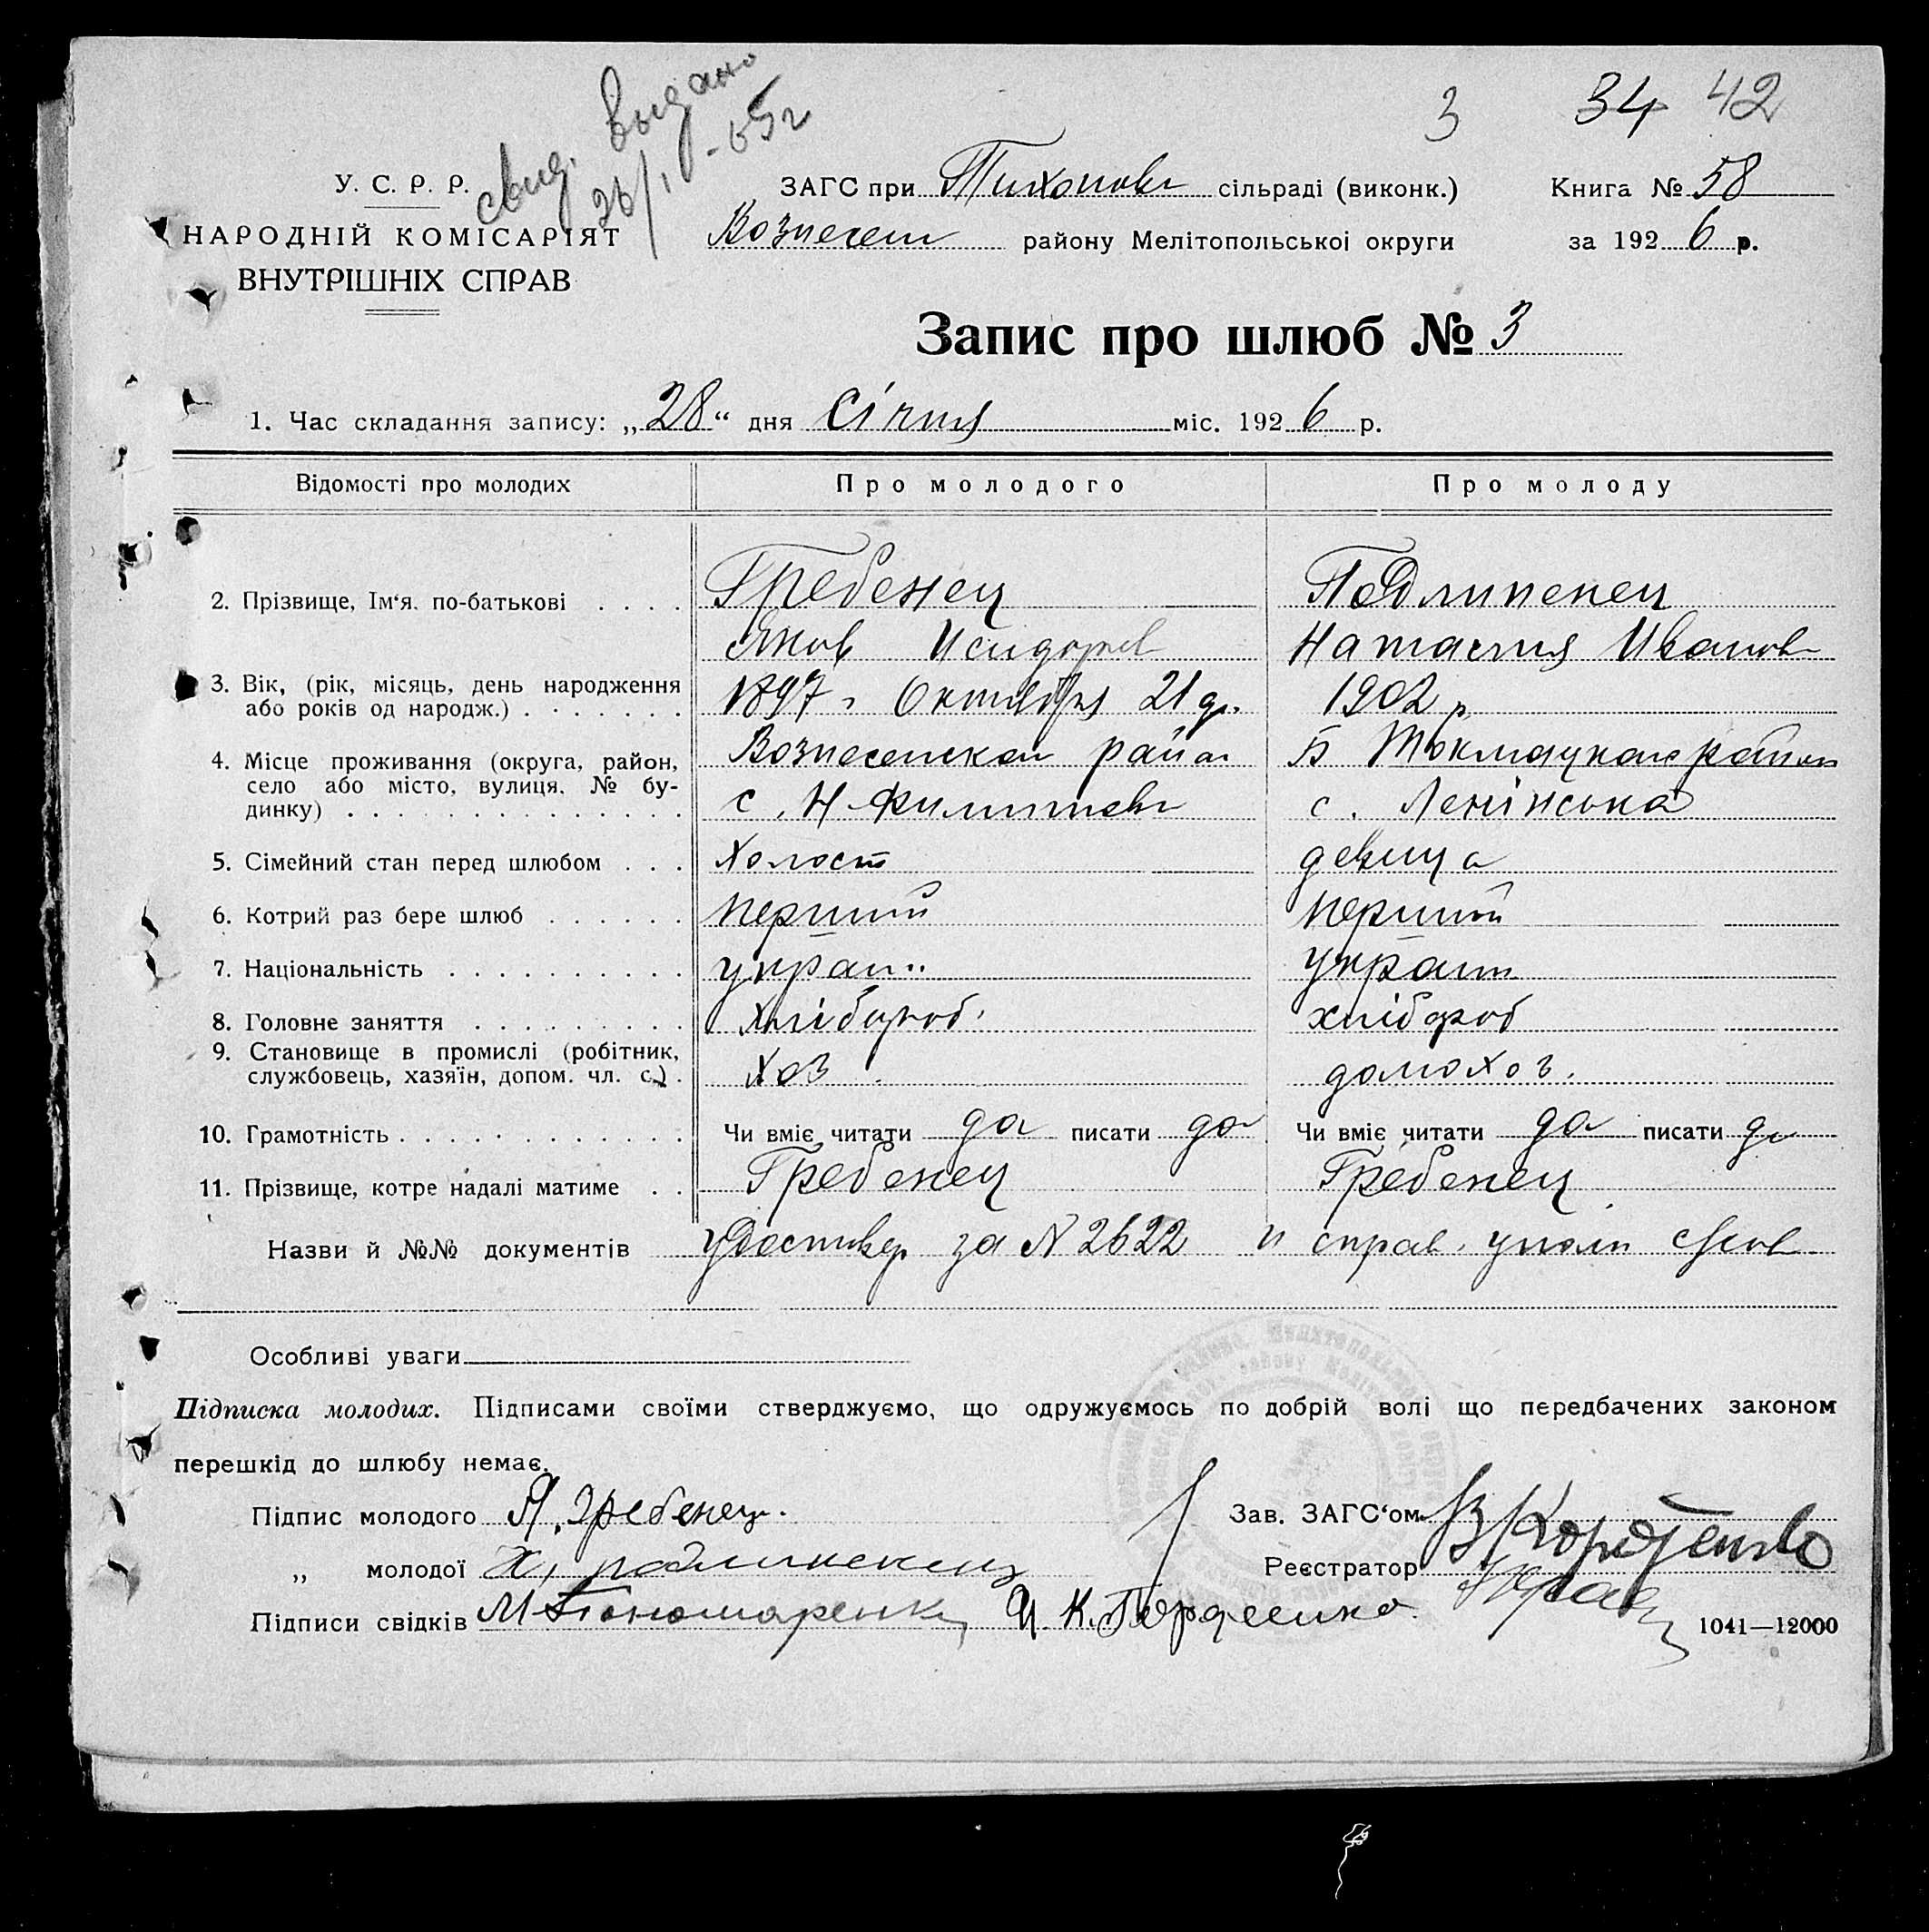 3 34 42
свид. выдано
26/I-65г
У. С. Р. Р.
НАРОДНІЙ КОМІСАРІЯТ
ВНУТРІШНІХ СПРАВ
ЗАГС при Тихонов сільраді (виконк.) Книга № 58
Вознесен району Мелітопольської округи за 1926 р.
Запис про шлюб № 3
1. Час складання запису: „28“ дня Січня міс. 1926 р.
Відомості про молодих Про молодого Про молоду
2. Прізвище, Ім‘я. по-батькові . . . . Гребенец Подлипенец
Яков Исидоров Наталия Иванов
3. Вік, (рік, місяць, день народження 1897 г Октября 21 д. 1902 р.
або років од народж.) . . . . . . .
4. Місце проживання (округа, район, Вознесенском район Б Токмацкого район
село або місто, вулиця, № бу- с. Н-Филипповк с. Ленінська
динку) . . . . . . . . . . . . . .
5. Сімейний стан перед шлюбом . . . Холост девица
6. Котрий раз бере шлюб . . . . . . перший перший
7. Національність . . . . . . . . . . украин украин
8. Головне заняття . . . . . . . . . Хлібороб. хлібороб
9. Становище в промислі (робітник, Хоз домохоз.
службовець, хазяїн, допом. чл. с.) .
10. Грамотність . . . . . . . . . . . . Чи вміє читати да писати да Чи вміє читати да писати да
11. Прізвище, котре надалі матиме . . Гребенец Гребенец
Назви й №№ документів удостовер за N 2622 и справ. уполн
Особливі уваги
Підписка молодих. Підписами своїми стверджуємо, що одружуємось по добрій волі що передбачених законом
перешкід до шлюбу немає.
Підпис молодого Я. Гребенец. Зав. ЗАГС‘ом
„ молодої Н. Реєстратор
Підписи свідків М Пономаренко И. К. Гордеенко. 1041—12000